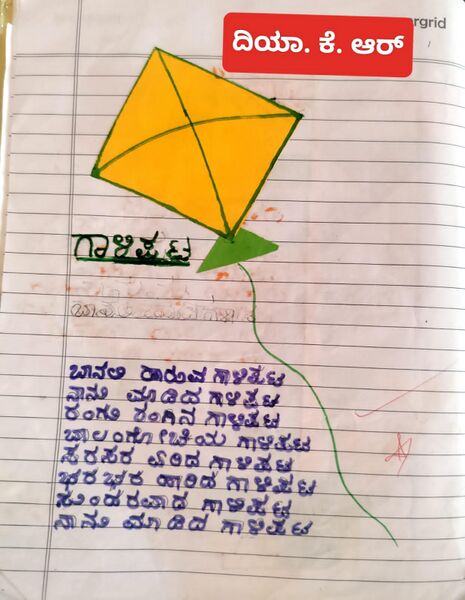 ergrid
ದಿಯಾ. ಕೆ. ಆರ್
ಗಾಳಿಪಟ
ಬಾನಲಿ ಹಾರುವ ಗಾಳಿಪಟ
ನಾನು ಮಾಡಿದ ಗಾಳಿಪಟ
ರಂಗು ರಂಗಿನ ಗಾಳಿಪಟ
ಬಾಲಂಗೋಚಿಯ ಗಾಳಿಪಟ
ಸರಸರ ಏರಿದ ಗಾಳಿಪಟ
ಭರಭರ ಹಾರಿದ ಗಾಳಿಪಟ
ಸುಂದರವಾದ ಗಾಳಿಪಟ
ನಾನು ಮಾಡಿದ ಗಾಳಿಪಟ